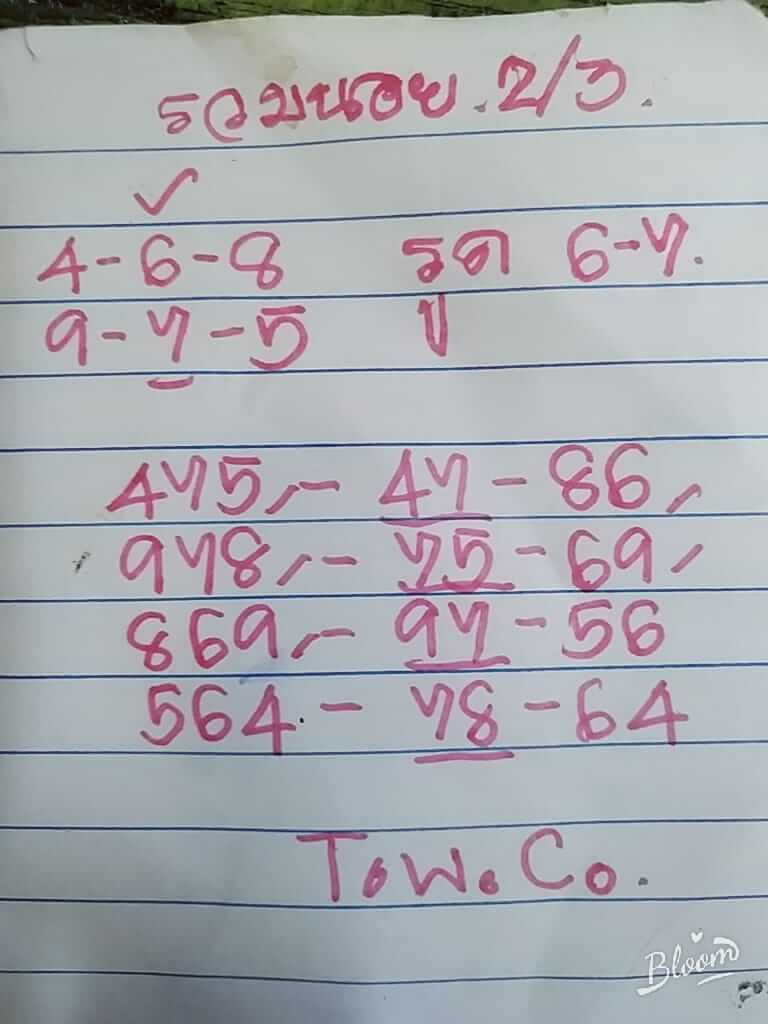 รวมหนอย.2/3.
✓
4-6-8 รูด 6-7.
9-7-5 ปู
475,- 47-86,
978,- 75-69,
869,- 97-56
564.- 78-64
T.W.Co.
Bloom